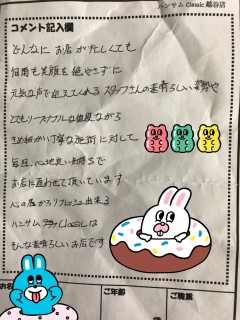 ハンサム Classic 越谷店
コメント記入欄
どんなに お店が忙しくても
何時も笑顔を絶やさずに
元気な声で迎えてくれる スタッフさんの素晴らしい姿勢や
とてもリーズナブルな価格ながら
きめ細かい丁寧な施術に対して
毎回、心地良い気持ちで
お店に通わせて頂いています。
心の底からリフレッシュ出来る
ハンサム Classicは
そんな素晴らしいお店です
お名
ご年齢
ご職業